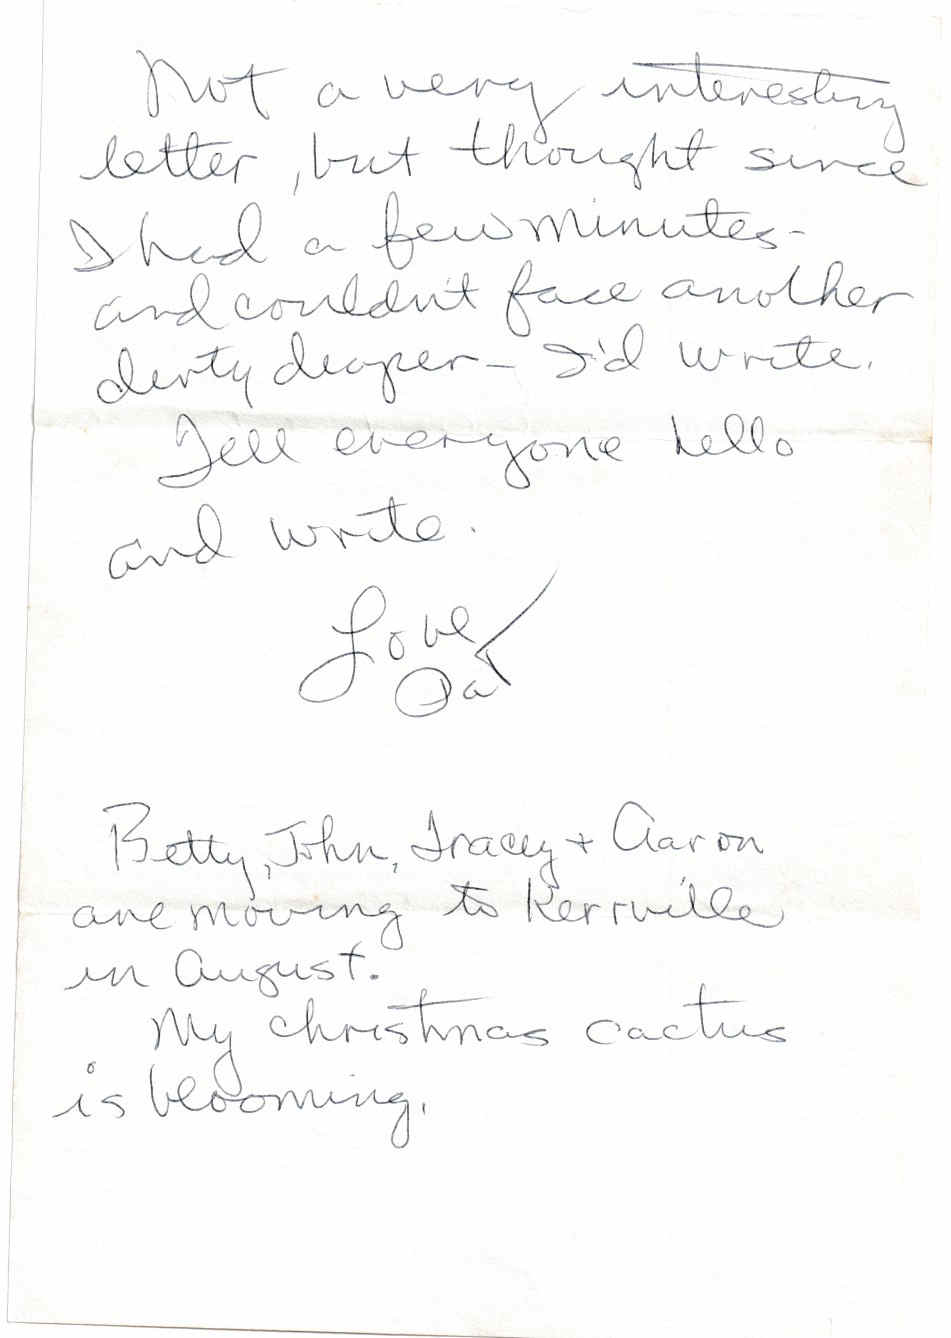 Not a very interesting
letter, but thought since
I had a few minutes-
and couldn't face another
dirty diaper - I'd write.
Tell everyone hello
and write.
Love
Pat
Betty, John, Tracey + Aaron
are moving to Kerrville
in August.
My christmas cactus
is blooming.